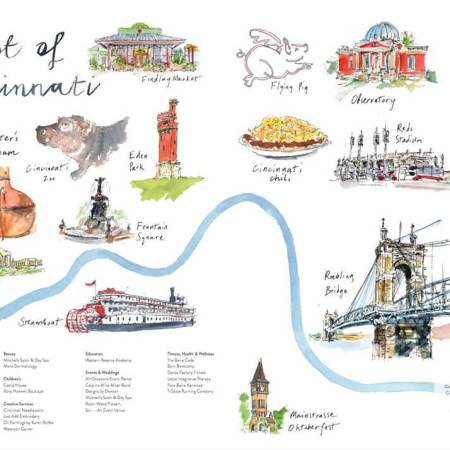 of
Findlay Market
Flying Pig
Observatory
Cincinnati
Zoo
Eden
Park
Cincinnati
Chili
Reds
Stadium
Fountain
Square
Roebling
Bridge
Steamboat
Mainstrasse
Oktoberfest
Beauty
Mitchell's Salon & Day Spa
Mona Dermatology
Children's
Castle House
Rory Maxwell Boutique
Creative Services
Cincinnati Needlepoint
Just Add Embroidery
Education
Western Reserve Academy
Events & Weddings
All Occasions Event Rental
Designs by Devean
Mitchell's Salon & Day Spa
Robin Wood Flowers
Fitness, Health & Wellness
The Barre Code
Burn Bootcamp
Dance Factory Fitness
Lotus Integrative Therapy
Pure Barre Kenwood
Tri-State Running Company